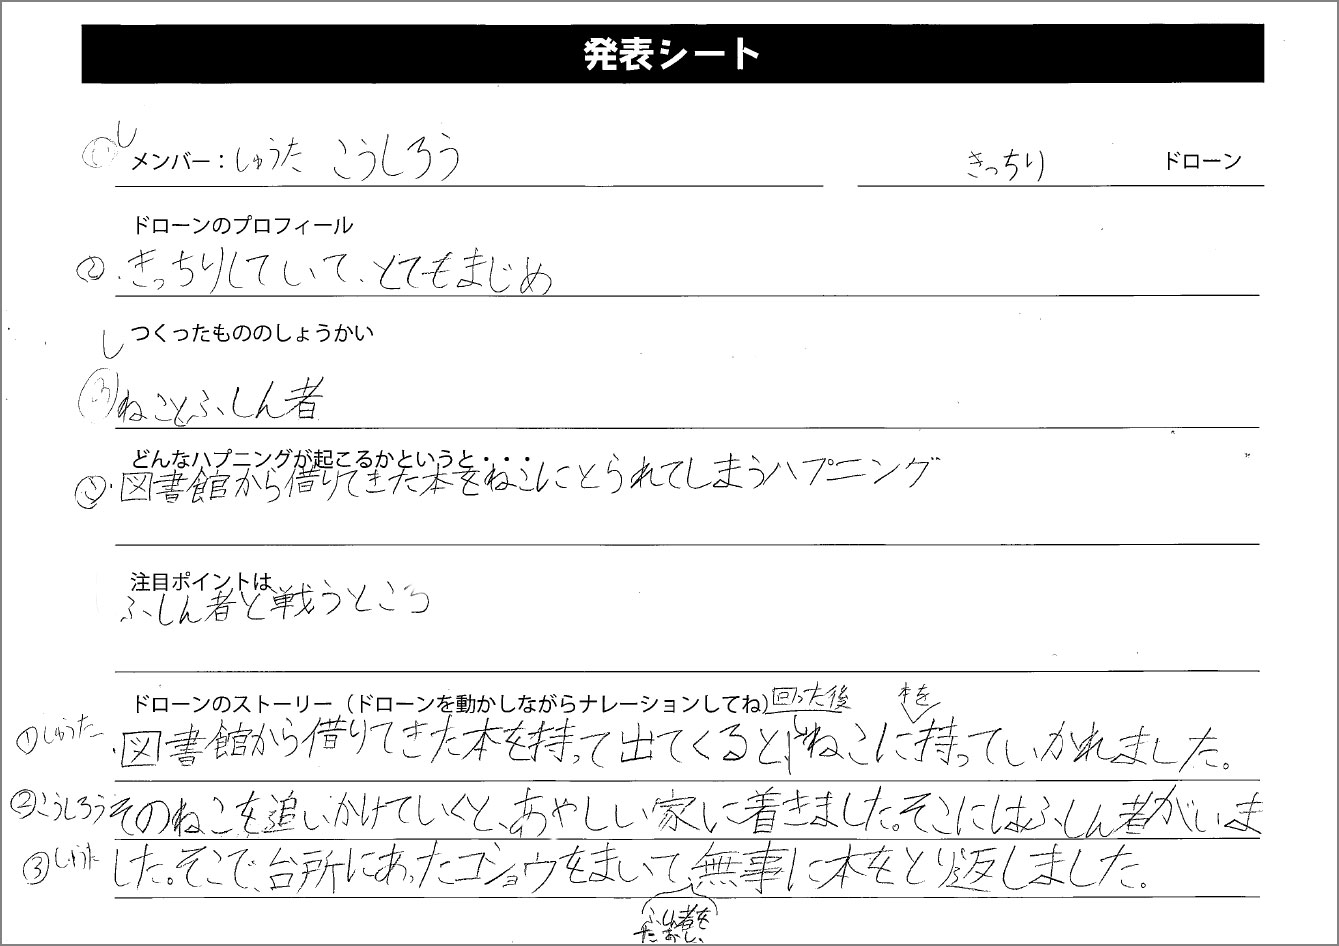 発表シート
① し メンバー：しゅうた こうしろう きっちり ドローン
ドローンのプロフィール
②・きっちりしていて、とてもまじめ
つくったもののしょうかい
し
③ ねことふしん者
どんなハプニングが起こるかというと・・・
・図書館から借りてきた本をねこにとられてしまうハプニング
注目ポイントは
ふしん者と戦うところ
ドローンのストーリー（ドローンを動かしながらナレーションしてね）
回った後 本を
①しゅうた ・図書館から借りてきた本を持って出てくると、ねこに持っていかれました。
②こうしろう そのねこを追いかけていくと、あやしい家に着きました。そこにはふしん者がいま
③しゅうた した。そこで、台所にあったコショウをまいて、無事に本をとり返しました。
ふしん者を
たおし、